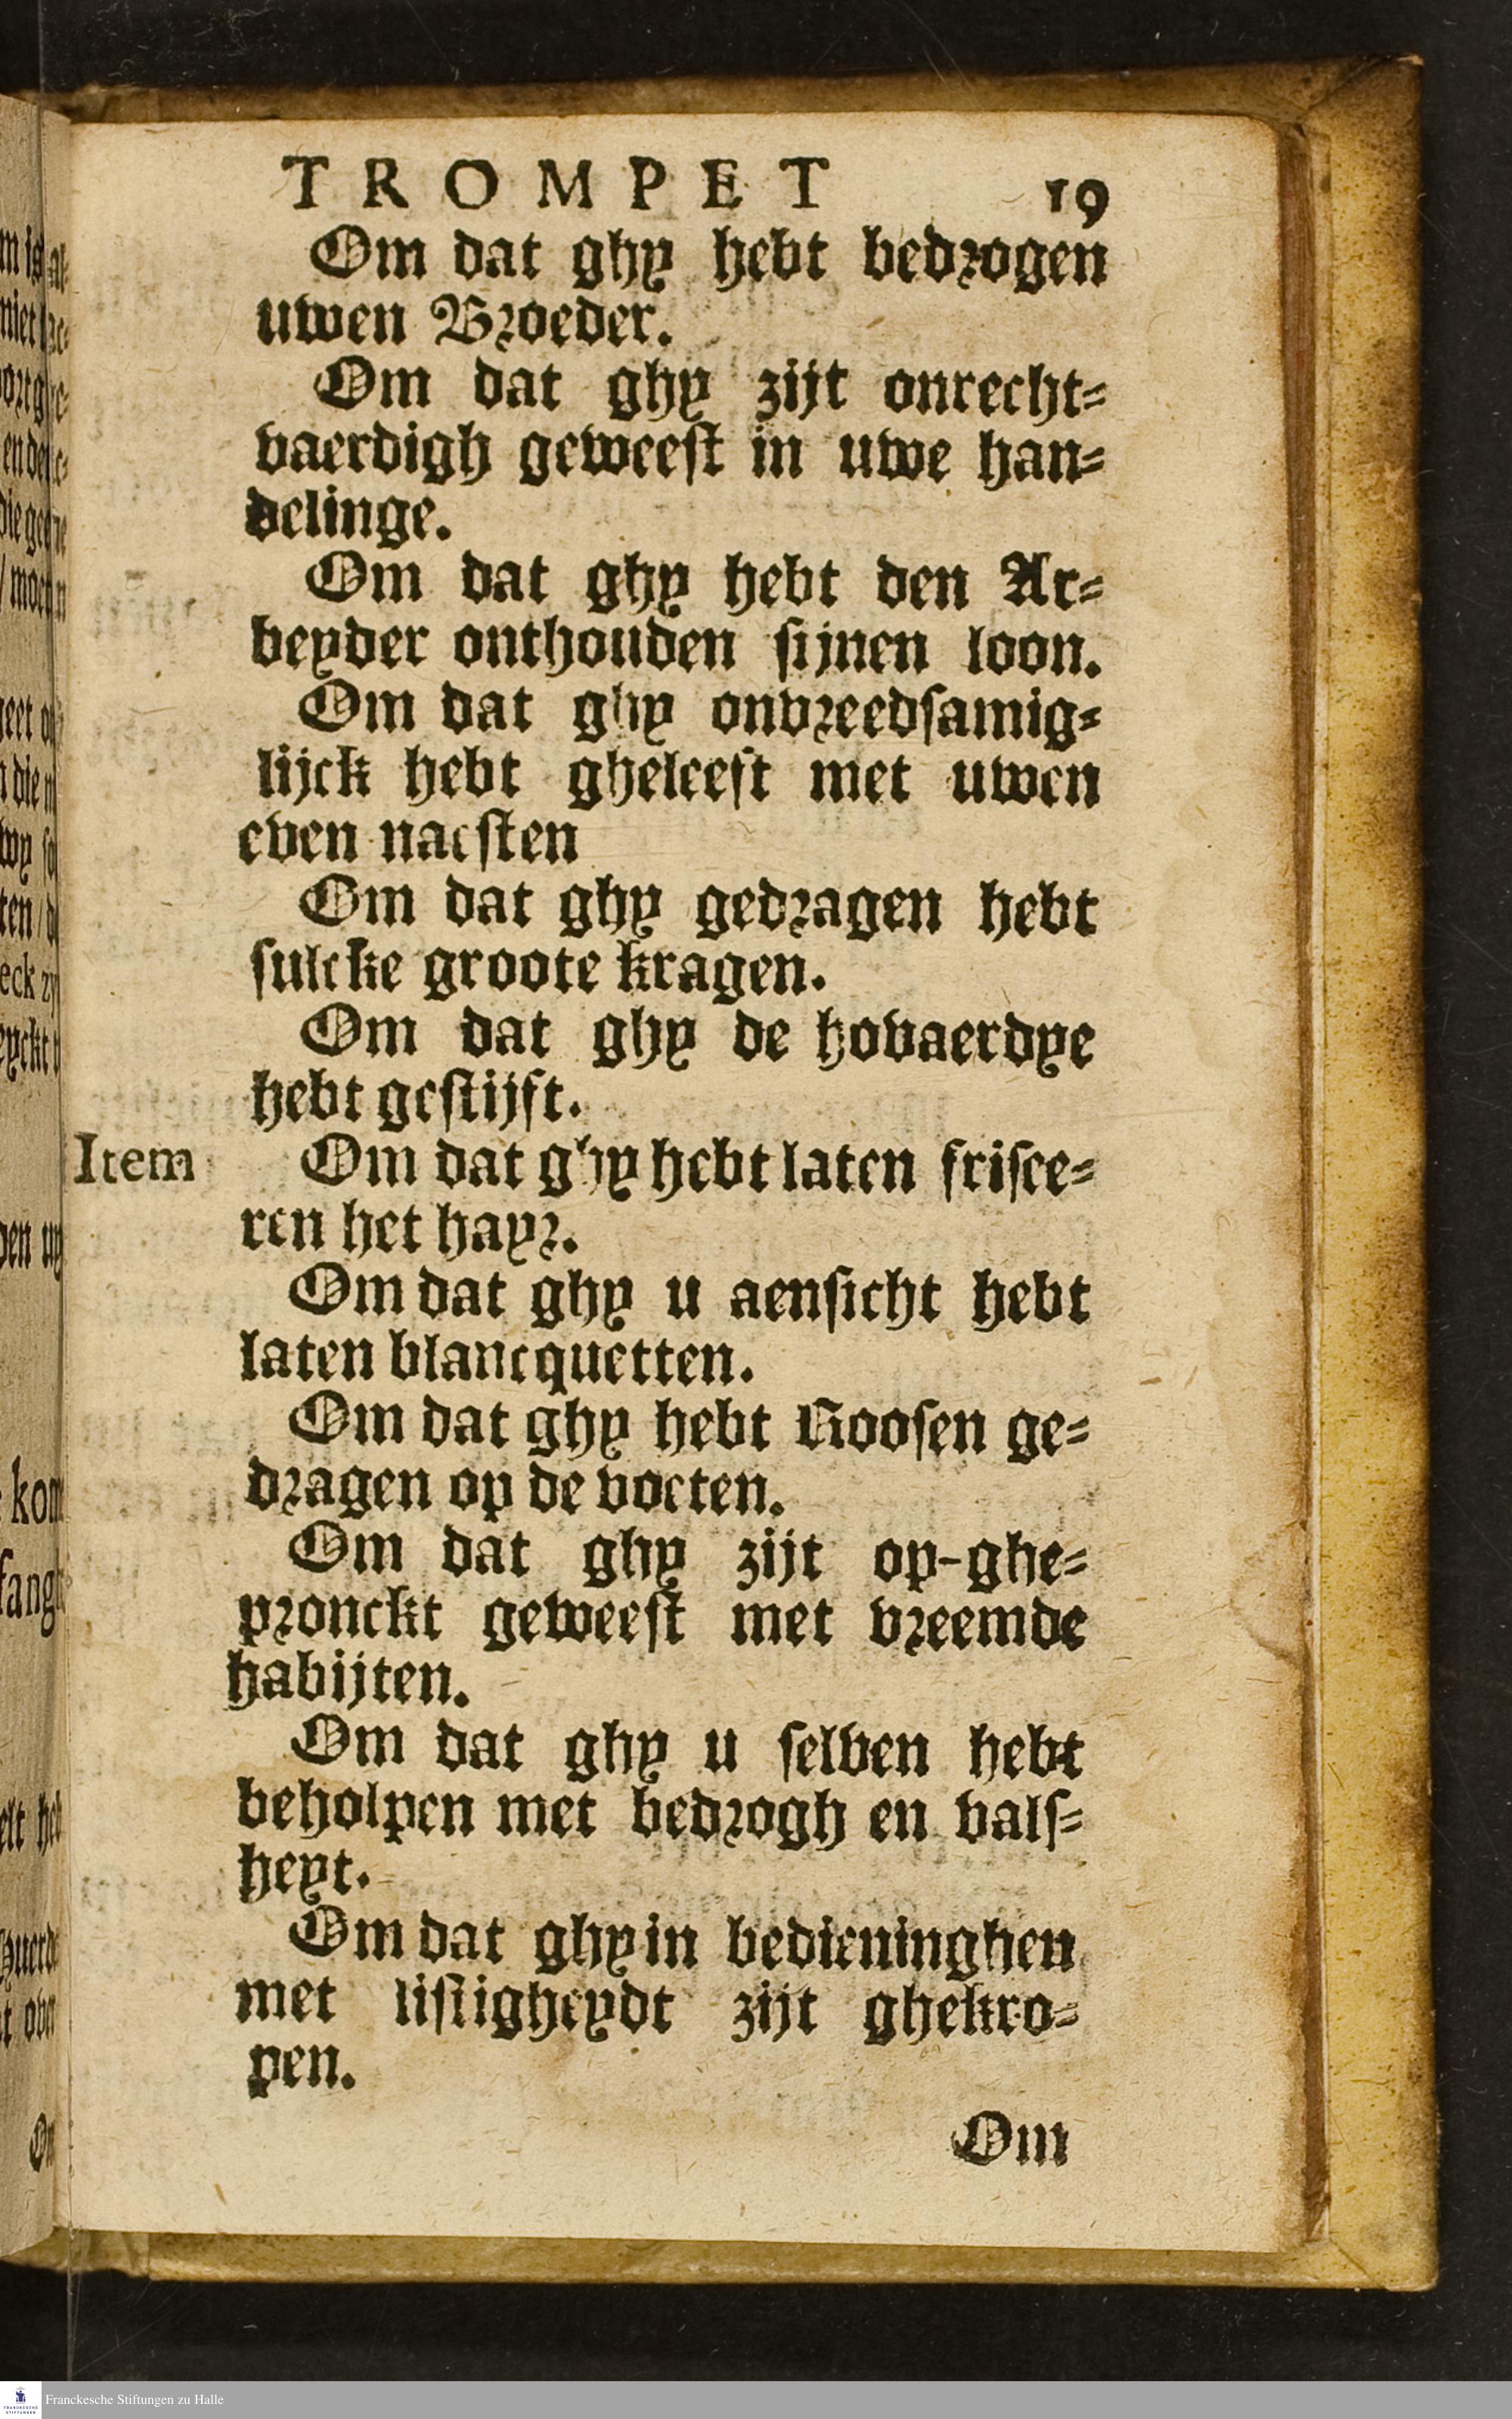 TROMPET 19
Om dat ghy hebt bedrogen
uwen Broeder.
Om dat ghy zijt onrecht-
vaerdigh geweest in uwe han-
delinge.
Om dat ghy hebt den Ar-
beyder onthouden sijnen loon.
Om dat ghy onvreedsamig-
lijck hebt gheleeft met uwen
even naesten
Om dat ghy gedragen hebt
sulcke groote kragen.
Om dat ghy de hovaerdye
hebt gestijft.
Item Om dat ghy hebt laten frisee-
ren het hayr.
Om dat ghy u aensicht hebt
laten blancquetten.
Om dat ghy hebt Roosen ge-
dragen op de voeten.
Om dat ghy zijt op-ghe-
pronckt geweest met vreemde
habijten.
Om dat ghy u selven hebt
beholpen met bedrogh en vals-
heyt.
Om dat ghy in bedieninghen
met listigheydt zijt ghekro-
pen.
Om
Franckesche Stiftungen zu Halle